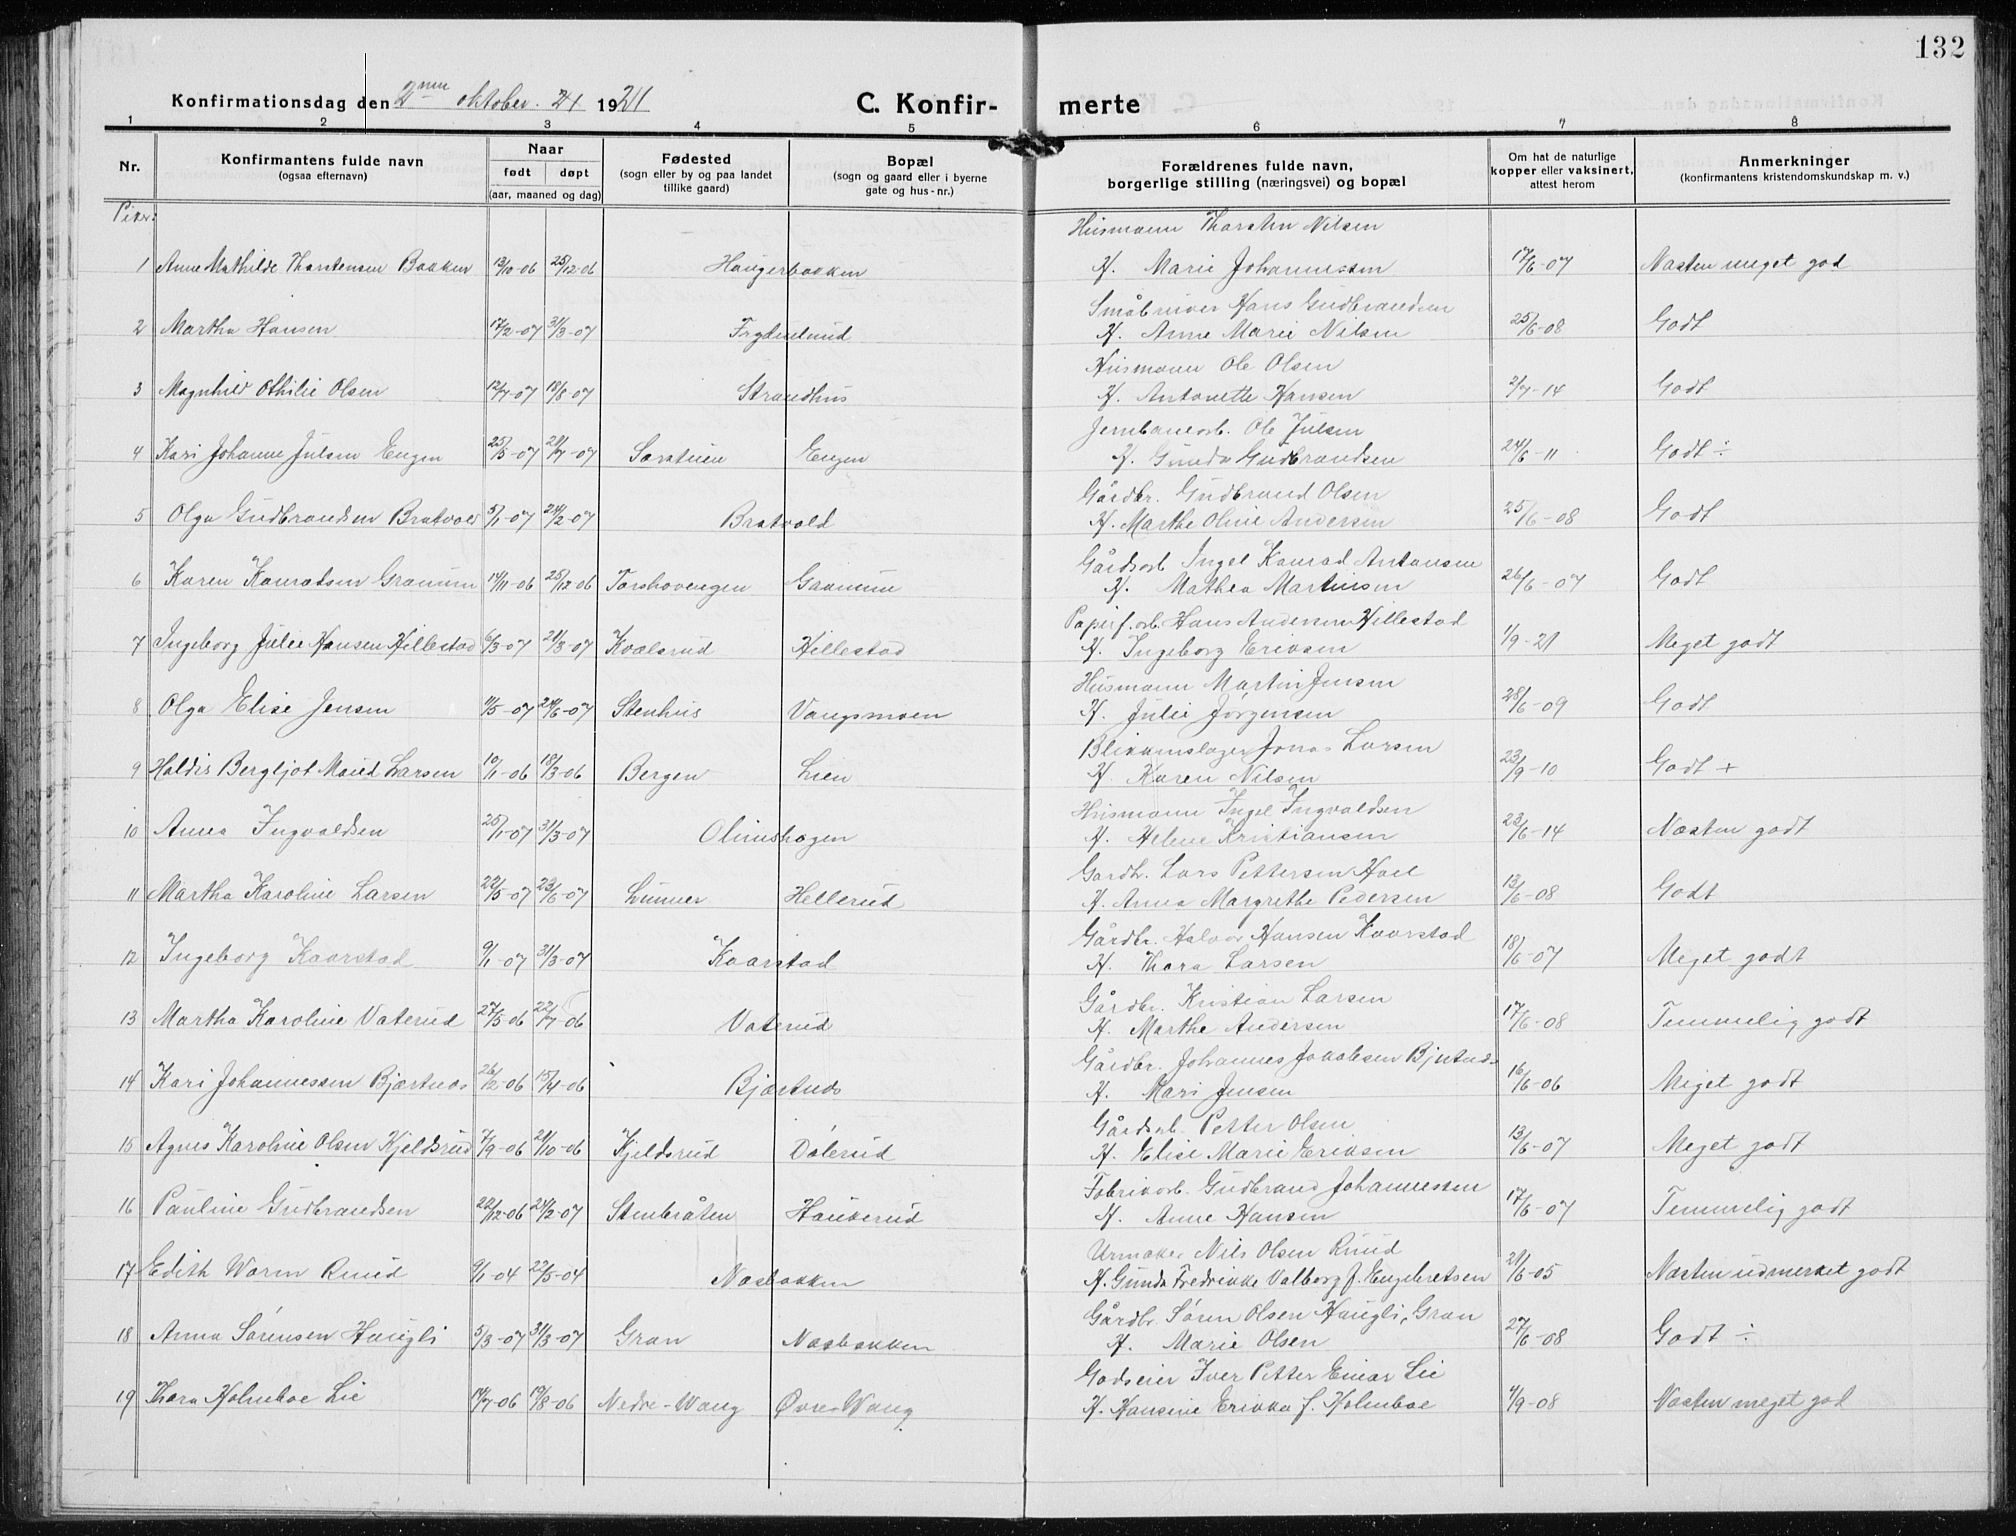 132
Konfirmationsdag den 2nen oktober. 21 1921
C. Konfirmerte
1 2 3 4 5 6 7 8
Nr. Konfirmantens fulde navn (ogsaa efternavn) Naar født døpt (aar, maaned og dag) Fødested (sogn eller by og paa landet tillike gaard) Bopæl (sogn og gaard eller i byerne gate og hus-nr.) Forældrenes fulde navn, borgerlige stilling (næringsvei) og bopæl Om hat de naturlige kopper eller vaksinert, attest herom Anmerkninger (konfirmantens kristendomskundskap m. v.)
Piker:
Husmann Thorsten Nilsen
1 Anne Mathilde Thorstensen Bakken 13/10-06 25/12-06 Haugerbakken H. Marie Johannessen 17/6-07 Næsten meget god
Småbruker Hans Gudbrandsen
2 Martha Hansen 17/2-07 31/3-07 Frydenlund H. Anne Marie Nilsen 25/6-08 Godt
Husmann Ole Olsen
3 Magnhild Othilie Olsen 12/7-07 18/8-07 Strandhus H. Antonette Hansen 2/7-14 Godt
Jernbanearb. Ole Julsen
4 Kari Johanne Julsen Engen 25/5-07 21/7-07 Sørstuen Engen H. Gunda Gudbrandsen 24/6-11 Godt ÷
Gårdbr. Gudbrand Olsen
5 Olga Gudbrandsen Bratvold 5/1-07 24/2-07 Bratvold H. Marthe Oline Andersen 25/6-08 Godt
Gårdsarb Ingel Konrad Antonsen
6 Karen Konradsen Granum 14/11-06 25/12-06 Torshovengen Gaanum H. Mathea Martinsen 26/6-07 Godt
Papirf.arb. Hans Andersen Hillestad
7 Ingeborg Julie Hansen Hillestad 6/3-07 21/3-07 Kvalsrud Hillestad H. Ingeborg Eriksen 1/9-21 Meget godt
Husmann Martin Jensen
8 Olga Elise Jensen 11/5-07 24/6-07 Stenhus Vangsmoen H. Julie Jørgensen 28/6-09 Godt
Blikkenslager Jonas Larsen
9 Haldis Bergljot Maud Larsen 10/1-06 18/3-06 Bergen Lien H. Karen Nilsen 23/9-10 Godt +
Husmann Ingel Ingvaldsen
10 Anna Ingvaldsen 25/1-07 31/3-07 Olimshagen H. Helene Kristiansen 23/6-14 Næsten godt
Gardbr. Lars Pettersen Hoel
11 Martha Karoline Larsen 22/5-07 23/6-07 Lunner Hellerud H. Anna Margrethe Pedersen 13/6-08 Godt
Gårdbr. Halvor Hansen Kaarstad
12 Ingeborg Kaarstad 9/1-07 31/3-07 Kaarstad H. Thora Larsen 18/6-07 Meget godt
Gårdbr. Kristian Larsen
13 Martha Karoline Vaterud 27/5-06 22/7-06 Vaterud H. Marthe Andersen 17/6-08 Temmelig godt
Gårdbr. Johannes Jakobsen Bjertnæs
14 Kari Johannessen Bjærtnæs 26/2-06 15/4-06 Bjærtnæs H. Mari Jensen 16/6-06 Meget godt
Gårdsarb. Petter Olsen
15 Agnes Karoline Olsen Kjeldsrud 7/9-06 21/10-06 Kjeldsrud Dølerud H. Elise Marie Eriksen 13/6-07 Meget godt
Fabrikarb. Gudbrand Johannessen
16 Pauline Gudbrandsen 22/12-06 24/2-07 Stenbråten Haukerud H. Anne Hansen 17/6-07 Temmelig godt
Urmaker Nils Olsen Ruud
17 Edith Warm Ruud 9/1-04 22/5-04 Næsbakken H. Gunda Fredrikke Valborg f. Engebretsen 21/6-05 Næsten udmerket godt
Gårdbr. Søren Olsen Haugli, Gran
18 Anna Sørensen Haugli 5/3-07 31/3-07 Gran Næsbakken H. Marie Olsen 27/6-08 Godt ÷
Godseier Iver Petter Einar Lie
19 Thora Holmboe Lie 14/7-06 19/8-06 Nedre-Wang Øvre-Wang H. Hansine Erikka f. Holmboe 4/9-08 Næsten meget god